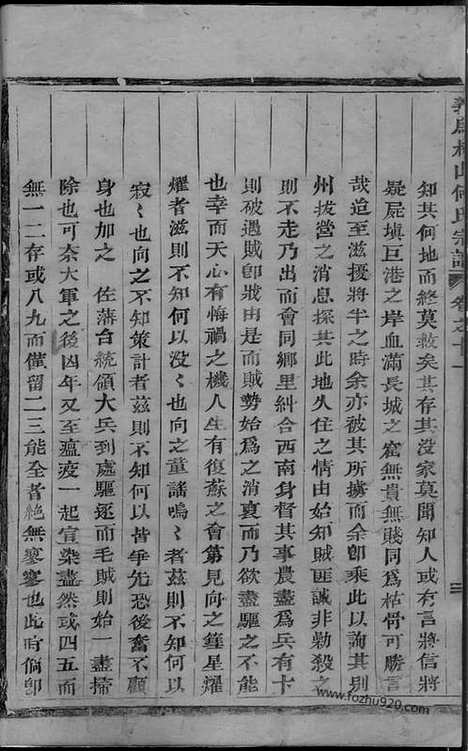 義烏
山何氏宗譜 卷之十一
知其何地而終莫救矣其存其没家莫聞知人或有言將信將
疑屍填巨港之岸血滿長城之窟無貴無賤同為枯骨可勝言
哉迨至滋擾將半之時余亦被其所擄而余卽乘此以詢其別
州拔營之消息探其此地久住之情由始知賊匪誠非勦殺之
則不走乃出而會同鄉里糾合西南身督其事農盡為兵有卡
則破遇賊卽戕由是而賊勢始為之消衰而乃欲盡驅之不能
也幸而天心有悔禍之機人生有復蘇之會第見向之鐘星耀
耀者滋則不知何以没〻也向之童謠嗚〻者茲則不知何以
寂〻也向之不知策計者茲則不知何以皆爭先恐後奮不顧
身也加之 佐藩台統領大兵到處驅逐而毛賊則始一盡掃
除也可奈大軍之後凶年又至瘟疫一起宣染盡然或四五而
無一二存或八九而僅留二三能全者絶無寥寥也此時倘卽
www.fozhu920.com